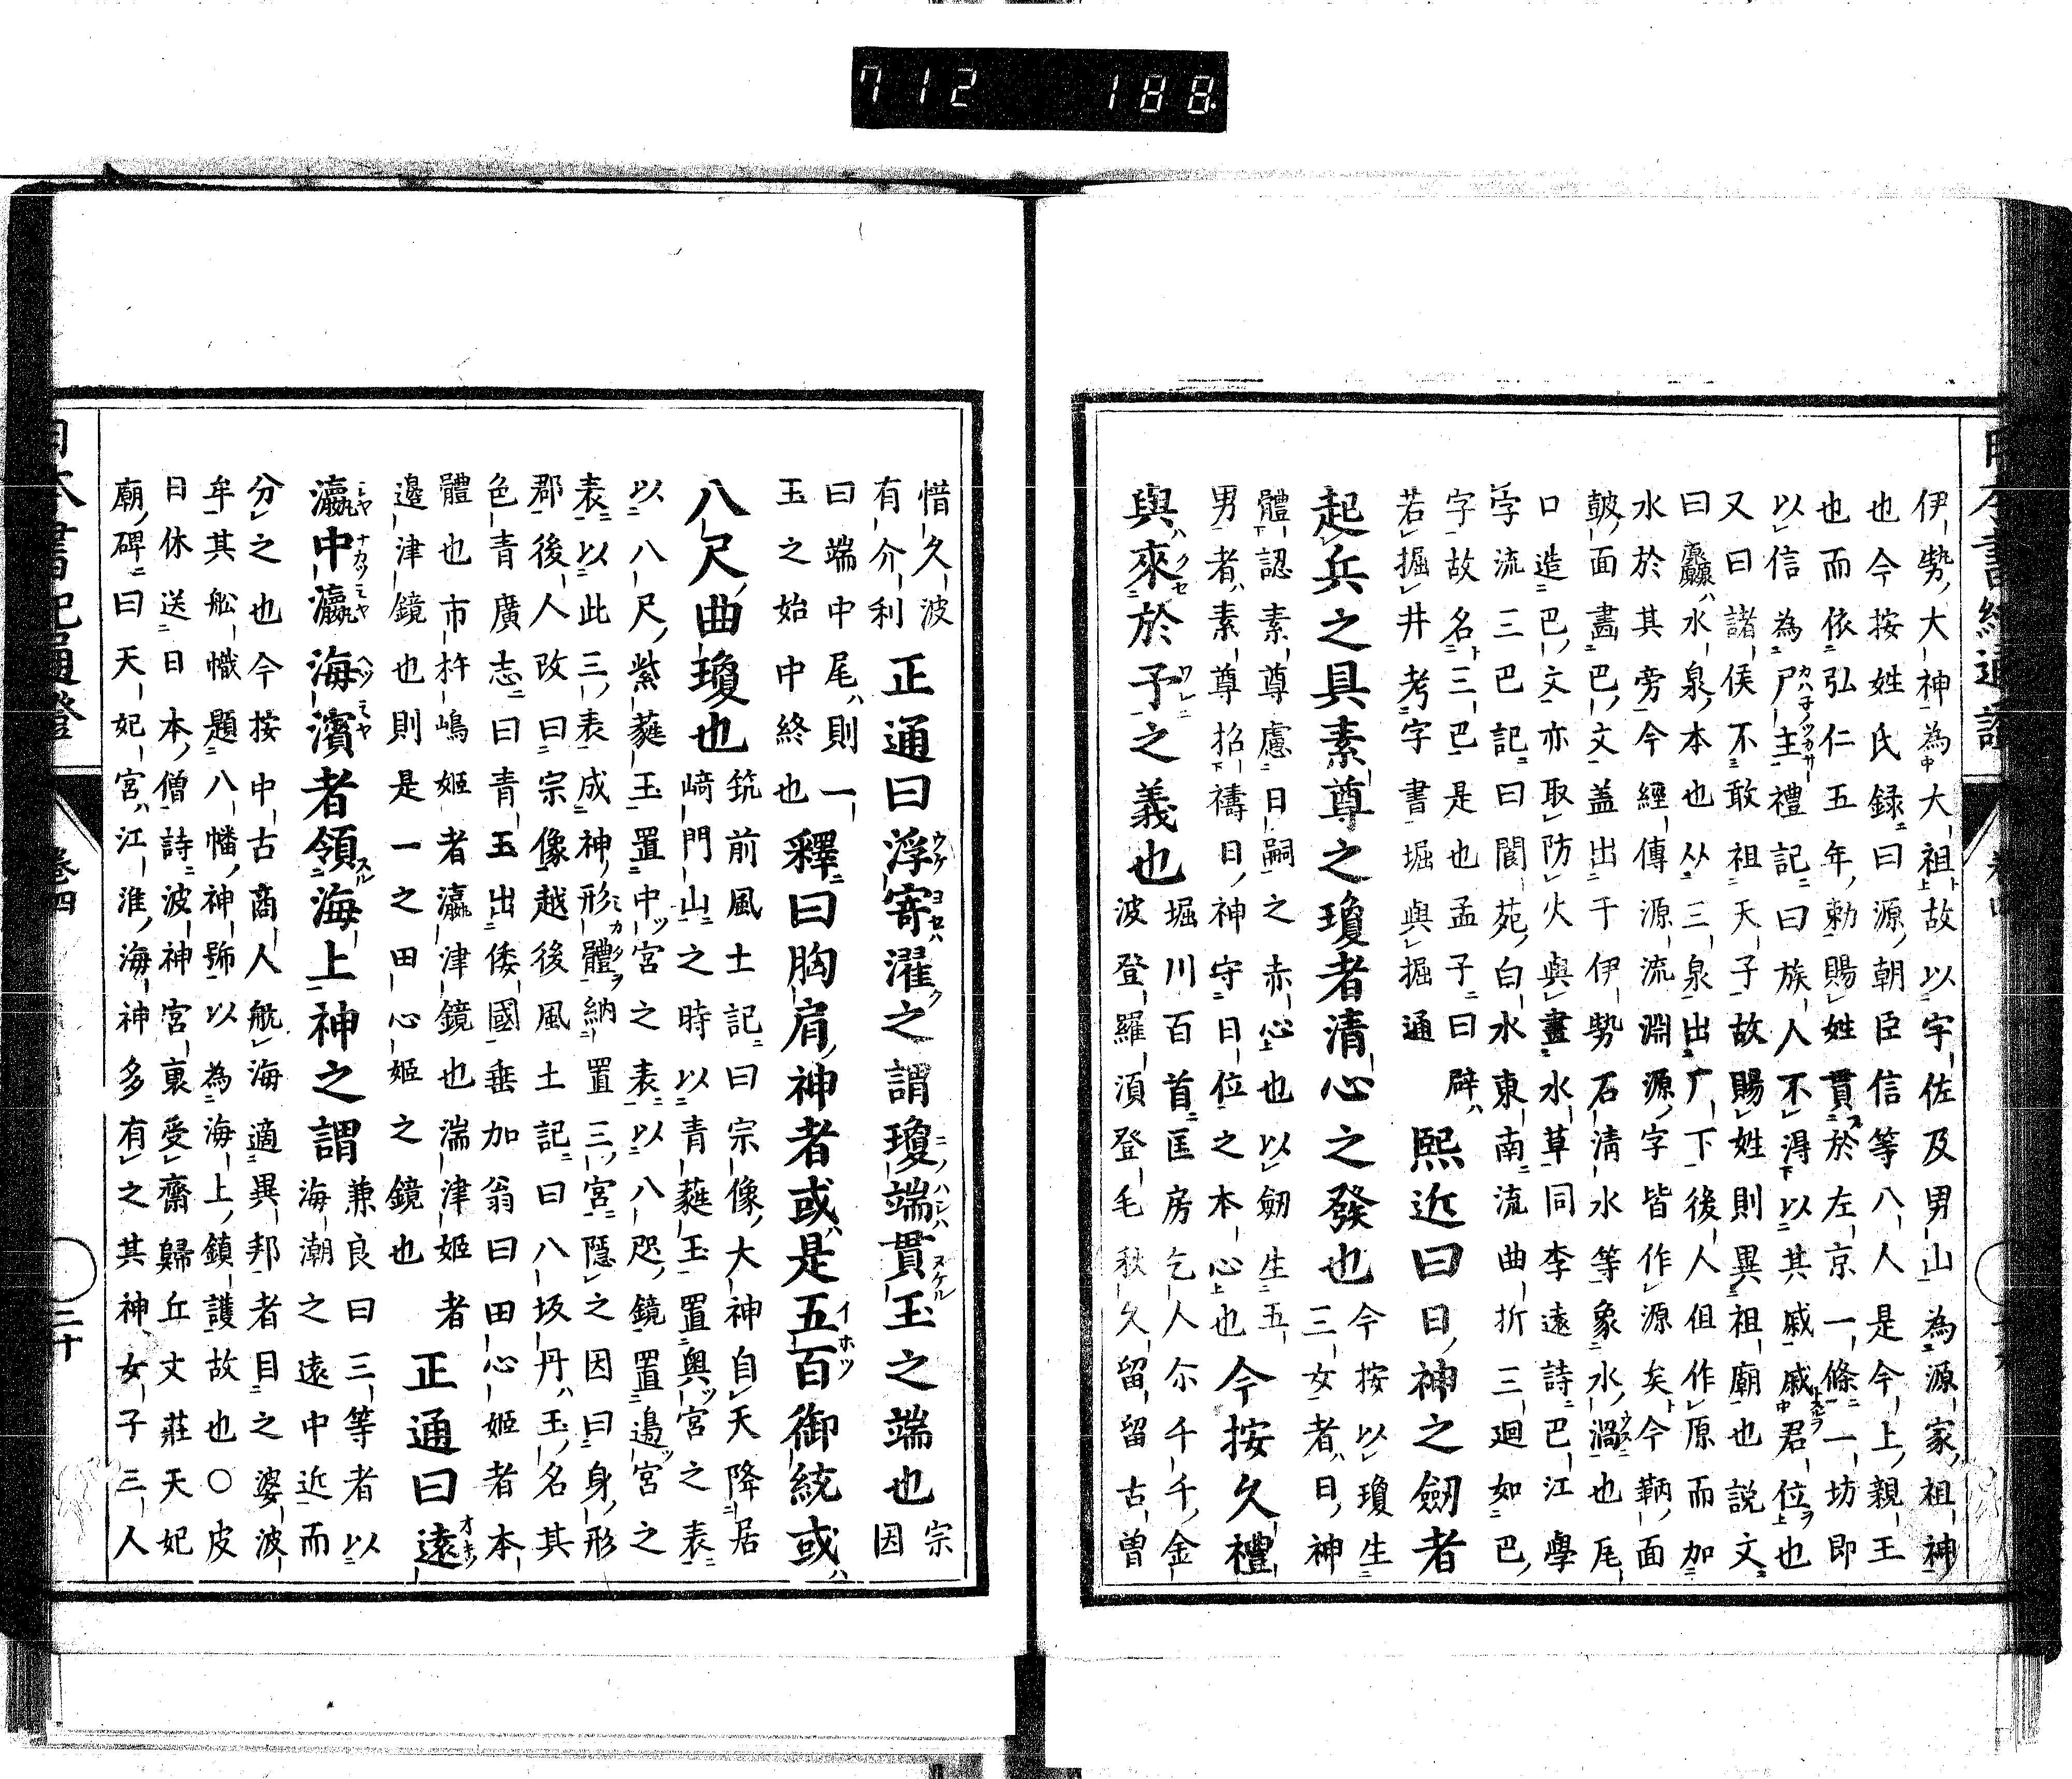 712 188
伊勢大神為大祖故以宇佐及男山為源家祖神
也今按姓氏録曰源朝臣信等八人是今上親王
也而依弘仁五年勅賜姓貫於左京一條一坊即
以信為尸主禮記曰族人不得以其戚戚君位也
又曰諸侯不敢祖天子故賜姓則異祖廟也説文
曰厵水泉本也从三泉出厂下後人但作原而加
水於其旁今經傳源流淵源字皆作源矣今鞆面
皷面畫巴文盖出于伊勢石清水等象水渦也尾
口造巴文亦取防火與畫水草同李遠詩巴江學
字流三巴記曰閬苑白水東南流曲折三廻如巴
字故名三巴是也孟子曰辟
若掘井考字書堀與掘通
熙近曰日神之劔者
起兵之具素尊之瓊者清心之發也
今按以瓊生
三女者日神
體認素尊慮日嗣之赤心也以劔生五
男者素尊招禱日神守日位之本心也
今按久禮
與來於予之義也
堀川百首匡房乞人尓千千金
波登羅湏登毛秋久留留古曽
惜久波
有介利
正通曰浮寄濯之謂瓊端貫玉之端也
宗
因
曰端中尾則一
玉之始中終也
釋曰胸肩神者或是五百御統或
八尺曲瓊也
筑前風土記曰宗像大神自天降居
﨑門山之時以青蕤玉置奥宮之表
以八尺紫蕤玉置中宮之表以八咫鏡置邊宮之
表以此三表成神形體納置三宮隠之因曰身形
郡後人改曰宗像越後風土記曰八坂丹玉名其
色青廣志曰青玉出倭國垂加翁曰田心姬者本
體也市杵嶋姬者瀛津鏡也湍津姬者
邊津鏡也則是一之田心姬之鏡也
正通曰遠
瀛中瀛海濱者領海上神之謂
兼良曰三等者以
海潮之遠中近而
分之也今按中古商人航海適異邦者目之婆波
牟其舩幟題八幡神號以為海上鎮護故也○皮
日休送日本僧詩波神宮裏受齋歸丘丈莊天妃
廟碑曰天妃宮江淮海神多有之其神女子三人
卷四
二十